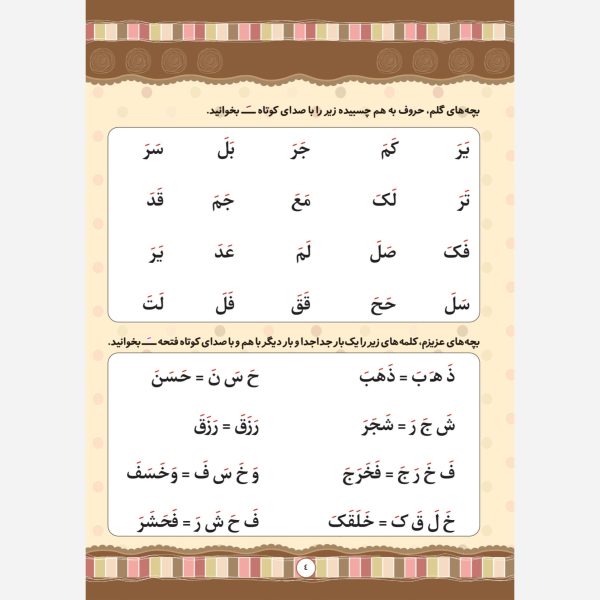 بچه‌های گلم، حروف به هم چسبیده زیر را با صدای کوتاه ـَـ بخوانید.
یَرَ کَمَ جَرَ بَلَ سَرَ
تَرَ لَکَ مَعَ جَمَ قَدَ
فَکَ صَلَ لَمَ عَدَ یَرَ
سَلَ حَجَ قَقَ فَلَ لَتَ
بچه‌های عزیزم، کلمه‌های زیر را یک‌بار جدا جدا و بار دیگر با هم و با صدای کوتاه فتحه ـَـ بخوانید.
ذَ هَـ بَ = ذَهَبَ حَ سَ نَ = حَسَنَ
شَ جَ رَ = شَجَرَ رَزَقَ = رَزَقَ
فَ خَ رَ جَ = فَخَرَجَ وَ خَ سَ فَ = وَخَسَفَ
خَ لَ قَ کَ = خَلَقَکَ فَ حَ شَ رَ = فَحَشَرَ
٤